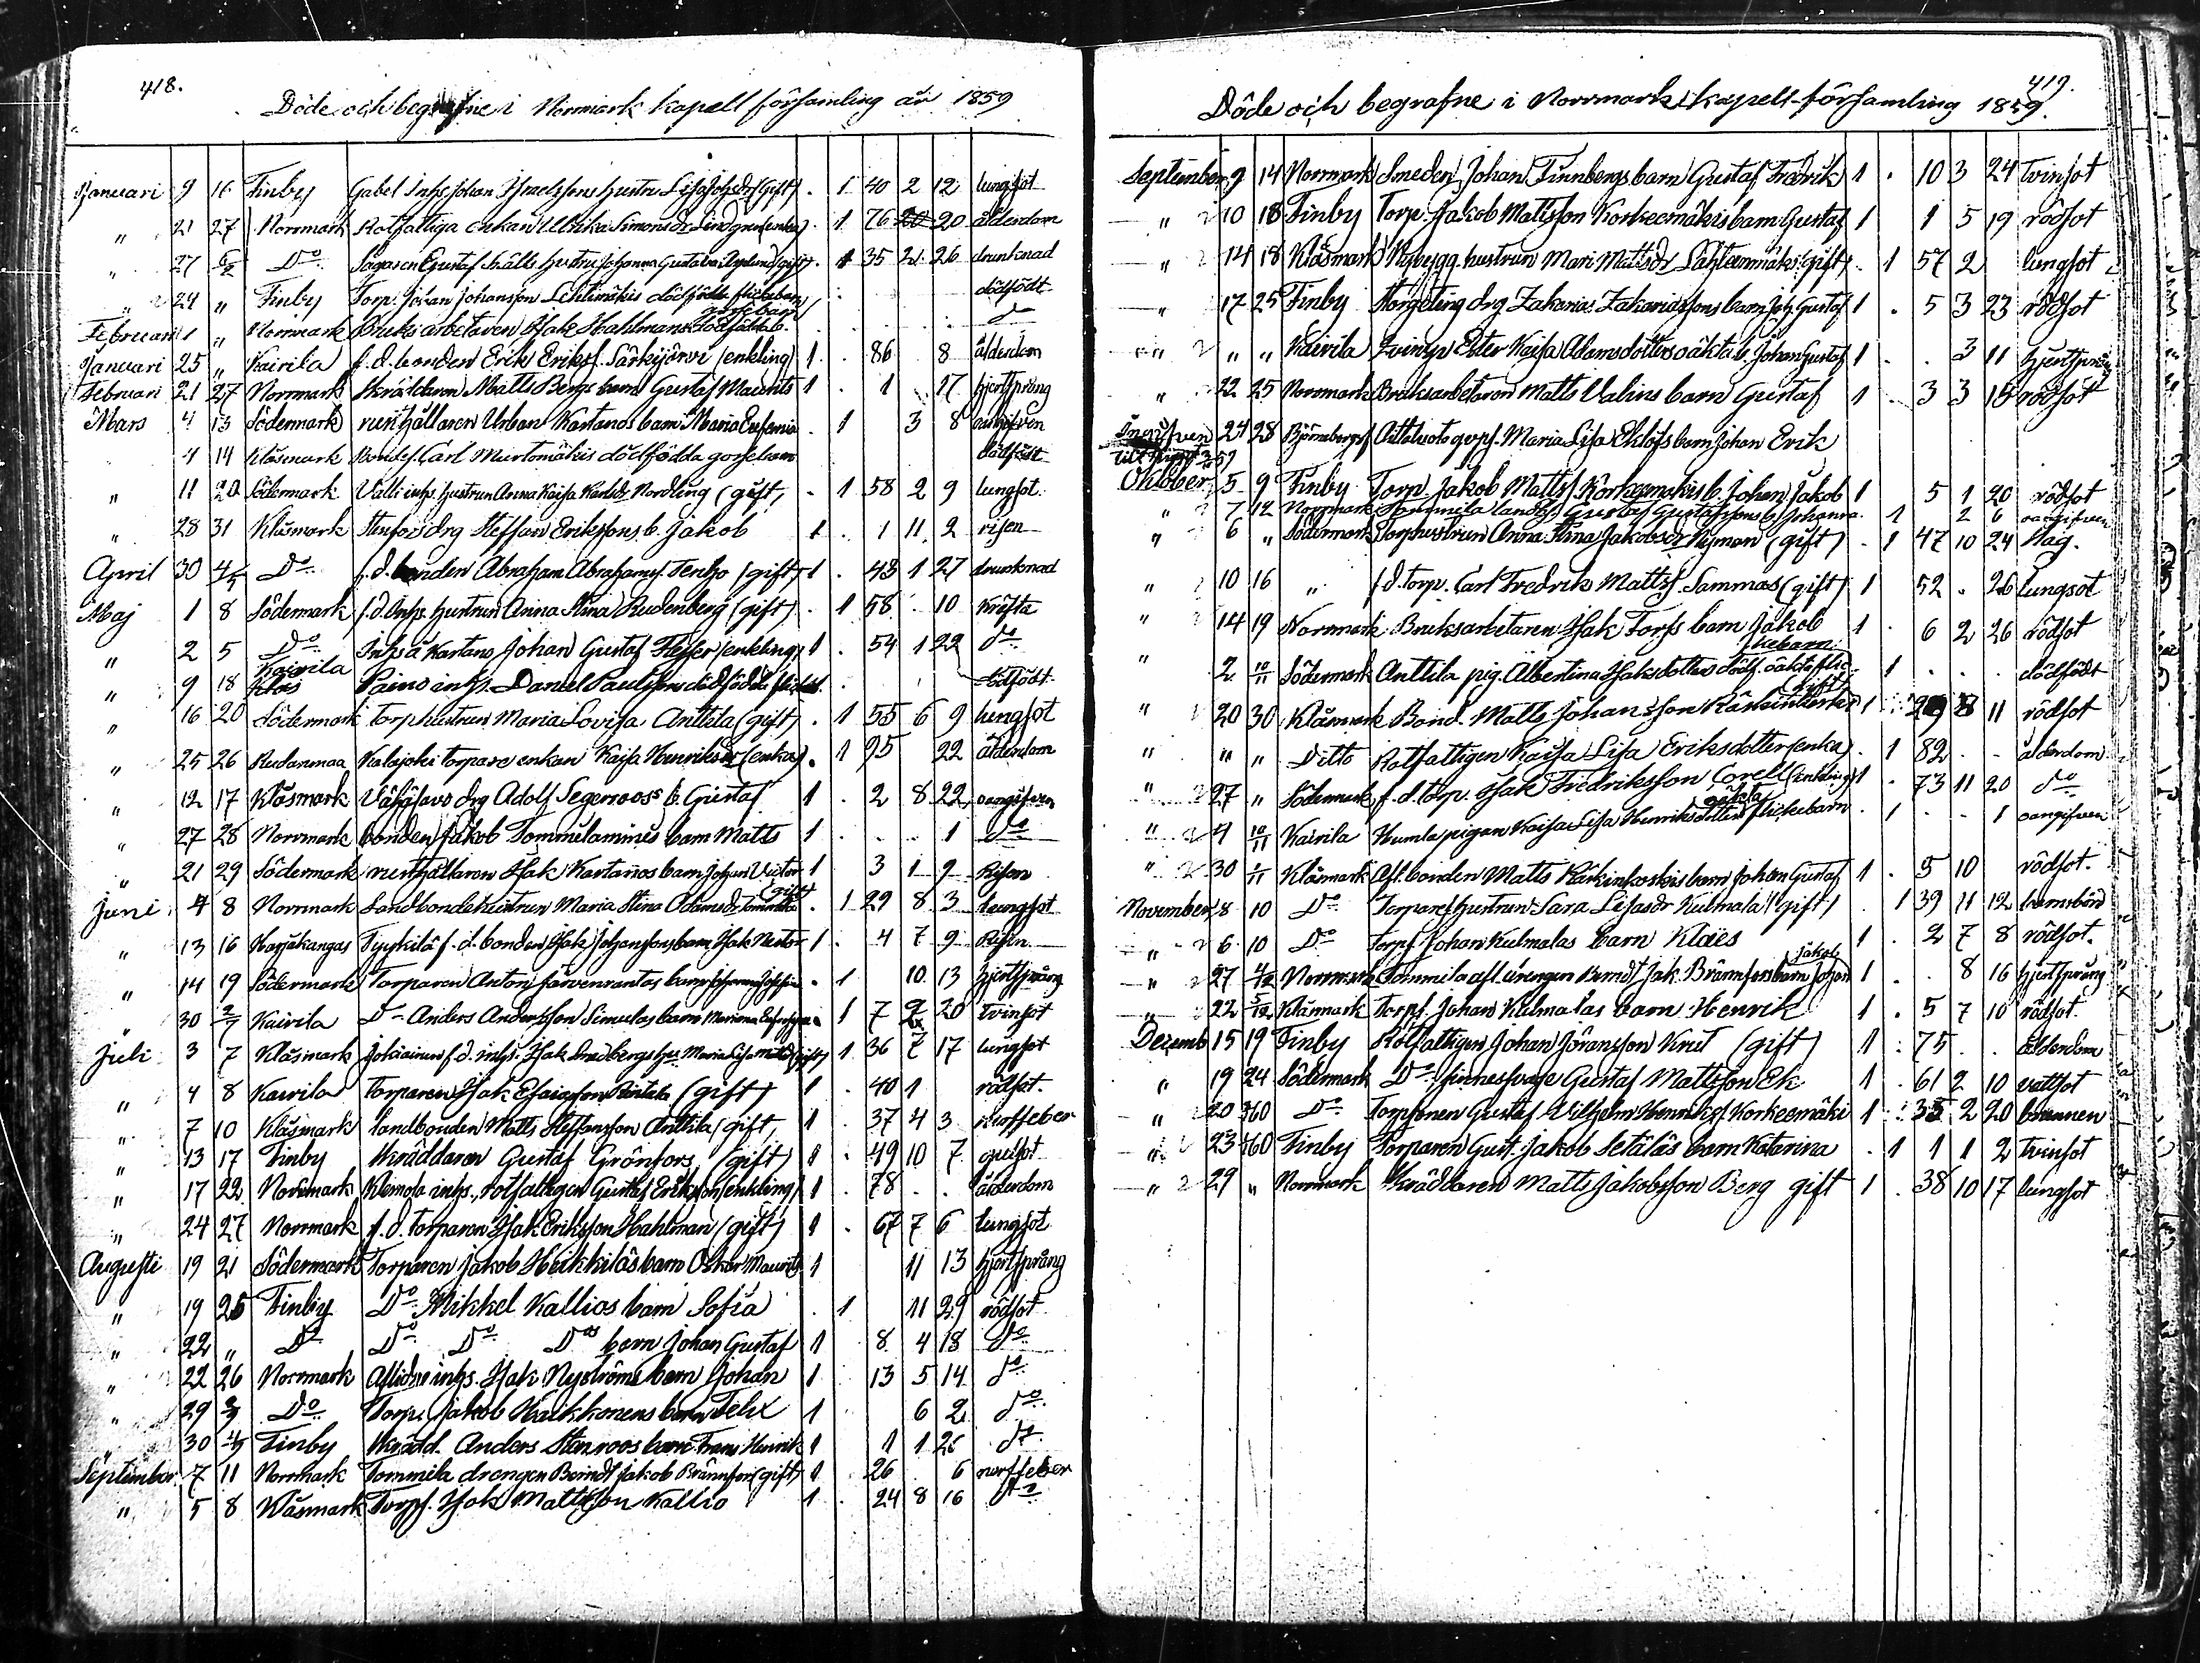 418.
Döde och begrafne i Norrmark kapell församling år 1859
Januari 9 16 Finby Gabel Inhs Johan Israelssons hustru Lisa Johsdr (gift) . 1 40 2 12 lungsot
" 21 27 Norrmark Rotfattiga enkan Ulrika Simonsdr Lindgren (enka) . 1 76 20 ålderdom
" 27 6/2 Do Sågaren Gustaf Fälts hustru Johanna Gustava (gift) . 1 35 2 26 drunknad
" 29 " Finby Torp. Johan Johansson Lehtimäkis dödfödda flickebarn dödfödt
Februari 1 " Norrmark Bruks arbetaren Isak Hahlmans dödfödda gossebarn do
Januari 25 " Kairila f.d. bonden Erik Erikss. Särkijärvi (enkling) 1 . 86 . 8 ålderdom
Februari 21 27 Norrmark Skräddaren Matts Bergs barn Gustaf Maurits 1 . 1 . 17 hjertsprång
Mars 4 13 Södermark rusthållaren Urban Kartanos barn Maria Eufemia . 1 3 8 oangifven
4 14 Klåsmark Bondes. Carl Murtomäkis dödfödda gossebarn dödfödt
" 11 20 Södermark Valli inhs. hustrun Anna Kaisa Karlsdr Nordling (gift) . 1 58 2 9 lungsot.
" 28 31 Klåsmark Stenfors drg Steffan Erikssons b. Jakob 1 . 1 11 2 risen
April 30 4/5 Do f.d. bonden Abraham Abrahamss. Tenho (gift) 1 . 43 1 27 drunknad
Maj 1 8 Södermark f.d. Inhs. hustrun Anna Stina Rudenberg (gift) . 1 58 . 10 kräfta
" 2 5 Do Inhs å Kartano Johan Gustaf (enkling) 1 . 54 1 22 do
" 9 18 Kairila Paino inhs. Daniel Paulssons dödfödda flickeb. dödfödt
" 16 20 Södermark torphustrun Maria Lovisa Anttila (gift) . 1 55 6 9 lungsot
" 25 26 Rudanmaa Kalajoki torpare enkan Kaisa Henriksdr (enka) . 1 95 22 ålderdom
" 12 17 Klåsmark drg Adolf Segerroos's b. Gustaf 1 . 2 8 22 oangifven
" 27 28 Norrmark bonden Jakob Tommilaminus barn Matts 1 . . . 1 do
" 21 29 Södermark rusthållaren Isak Kartanos barn Johan Victor 1 3 1 9 Risen
Juni 4 8 Norrmark Landbondehustrun Maria Stina Adamsdr Tommila (gift) . 1 29 8 3 lungsot
" 13 16 Harjakangas Tyykilä f.d. bonden Isak Johanssons barn Isak Nestor 1 . 4 7 9 Risen
" 14 19 Södermark Torparen Anton Järvenrantas barn Johanna Josefina . 1 10 13 hjertsprång
" 30 2/7 Kairila Do Anders Andersson Simulas barn Mariana . 1 7 2 20 tvinsot
Juli 3 7 Klåsmark f.d. inhs. Isak hu: Maria Lisa (gift) 1 36 7 17 lungsot
" 4 8 Kairila Torparen Isak Esaiasson Rintala (gift) 1 . 40 1 rödsot.
" 7 10 Klåsmark landbonden Matts Steffansson Anttila (gift) 1 . 37 4 3 nerffeber
" 13 17 Finby Skräddaren Gustaf Grönfors (gift) 1 . 49 10 7 gulsot
" 17 22 Norrmark Klemola inhs., rotfattigen Gustaf Eriksson (enkling) 1 . 78 . . ålderdom
" 24 27 Norrmark f.d. torparen Isak Eriksson Hahlman (gift) 1 . 67 7 6 lungsot
Augusti 19 21 Södermark Torparen Jakob Heikkiläs barn Oskar Maurits 1 11 13 hjertsprång
" 19 25 Finby Do Mikkel Kallios barn Sofia . 1 11 29 rödsot
" 22 " Do Do Do Dos barn Johan Gustaf 1 8 4 18 Do
" 22 26 Norrmark Aflidne inhs. Isak Nyströms barn Johan 1 13 5 14 do
" 29 3/9 Do Torp. Jakob Haikkonens barn Felix 1 6 2 do
" 30 4/9 Finby Skrädd. Anders Stenroos barn Frans Henrik 1 1 1 26 do
September 7 11 Norrmark Tommila drengen Berndt Jakob Brännfors (gift) 1 26 6 nerffeber
" 5 8 Klåsmark Torps. Isak Mattsson Kallio 1 . 24 8 16 do
419.
Döde och begrafne i Norrmarks kapell-församling 1859.
September 9 14 Norrmark Smeden Johan Finnbergs barn Gustaf Fredrik 1 . 10 3 24 tvinsot
" 10 18 Finby Torp. Jakob Mattsson Korkeemäkis barn Gustaf 1 1 5 19 rödsot
" 14 18 Klåsmark Nybygg. hustrun Mari Mattsdr Lähteenmäki (gift) . 1 57 2 lungsot
" 17 25 Finby drg Zakarias Zakariassons barn Joh. Gustaf 1 . 5 3 23 rödsot
" " " Kairila Ester Kaisa Adamsdotters oäkta b. Johan Gustaf 1 . . 3 11 hjertsprång
" 22 25 Norrmark Bruksarbetaren Matts Valins barn Gustaf 1 . 3 3 15 rödsot
24 28 Björneborgs Aittaluoto qvps. Maria Lisa Eklöfs barn Johan Erik
Oktober 5 9 Finby Torp. Jakob Mattss. Korkeemäkis b. Johan Jakob 1 5 1 20 rödsot
" 7 12 Norrmark Tommila landb. Gustaf Gustafssons b. Johanna . 1 2 6 oangifven
" 6 " Södermark Torphustrun Anna Stina Jakobsdr Nyman (gift) . 1 47 10 24 slag.
" 10 16 " f.d. torp. Carl Fredrik Mattss. Sammas (gift) 1 52 . 26 lungsot
" 14 19 Norrmark Bruksarbetaren Isak Forss barn Jakob 1 . 6 2 26 rödsot
" 2 10/11 Södermark Anttila pig. Albertina Isaksdotters dödf. oäkta flickebarn 1 . . . dödfödt
" 20 30 Klåsmark Bond. Matts Johansson (gift) 1 8 11 rödsot
" " " Ditto Rotfattigen Kaisa Lisa Eriksdotter (enka) . 1 82 . - ålderdom
" 27 " Södermark f.d. torp. Isak Fredriksson Corell (enkling) 1 . 73 11 20 do
" 4 10/11 Kairila Humla pigan Kaisa Lisa Henriksdotters oäkta flickebarn . 1 . . 1 oangifven
" 30 1/11 Klåsmark Afl. bonden Matts Kärkinkoskis barn Johan Gustaf 1 . 5 10 rödsot.
November 8 10 Do Torpares hustrun Sara Lisasdr Kulmala (gift) . 1 39 11 12 barnsbörd
" 6 10 Do Torps. Johan Kulmalas barn Klaes 1 . 2 7 8 rödsot.
" 27 4/12 Norrmark Tommila afl. drengen Berndt Jak. Brännfors barn Johan Jakob 1 . . 8 16 hjertsprång
" 22 5/12 Klåsmark Torps. Johan Kulmalas barn Henrik 1 . 5 7 10 rödsot.
Decemb 15 19 Finby Rotfattigen Johan Göransson Knut (gift) 1 . 75 . . ålderdom
" 19 24 Södermark Do sinnessvage Gustaf Mattsson Ek 1 . 61 2 10 vattsot
" 20 Do Torpsonen Gustaf Vilhelm Henrikss. Korkeemäki 1 . 35 2 20
" 23 Finby Torparen Gust. Jakob Setäläs barn Katarina . 1 1 1 2 tvinsot
" 29 " Norrmark Skräddaren Matts Jakobsson Berg gift 1 . 38 10 17 lungsot